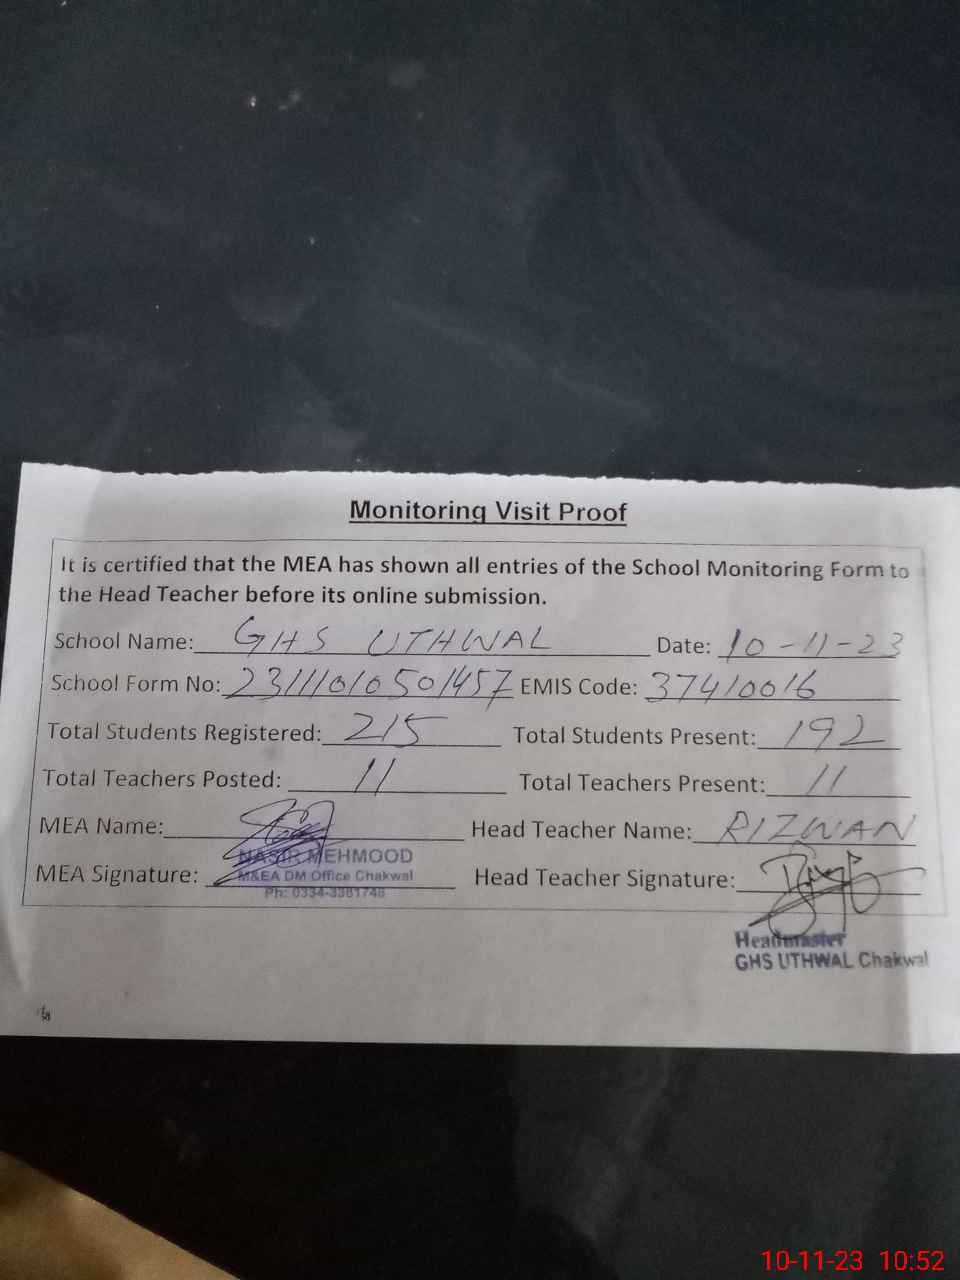 Monitoring Visit Proof
It is certified that the MEA has shown all entries of the School Monitoring Form to
the Head Teacher before its online submission.
School Name: GHS UTHWAL Date: 10-11-23
School Form No: 23111010501457 EMIS Code: 37410016
Total Students Registered: 215 Total Students Present: 192
Total Teachers Posted: 11 Total Teachers Present: 11
MEA Name: Head Teacher Name: RIZWAN
NASIR MEHMOOD
MEA Signature: M&EA DM Office Chakwal Head Teacher Signature:
Ph: 0334-3381748
Headmaster
GHS UTHWAL Chakwal
10-11-23 10:52